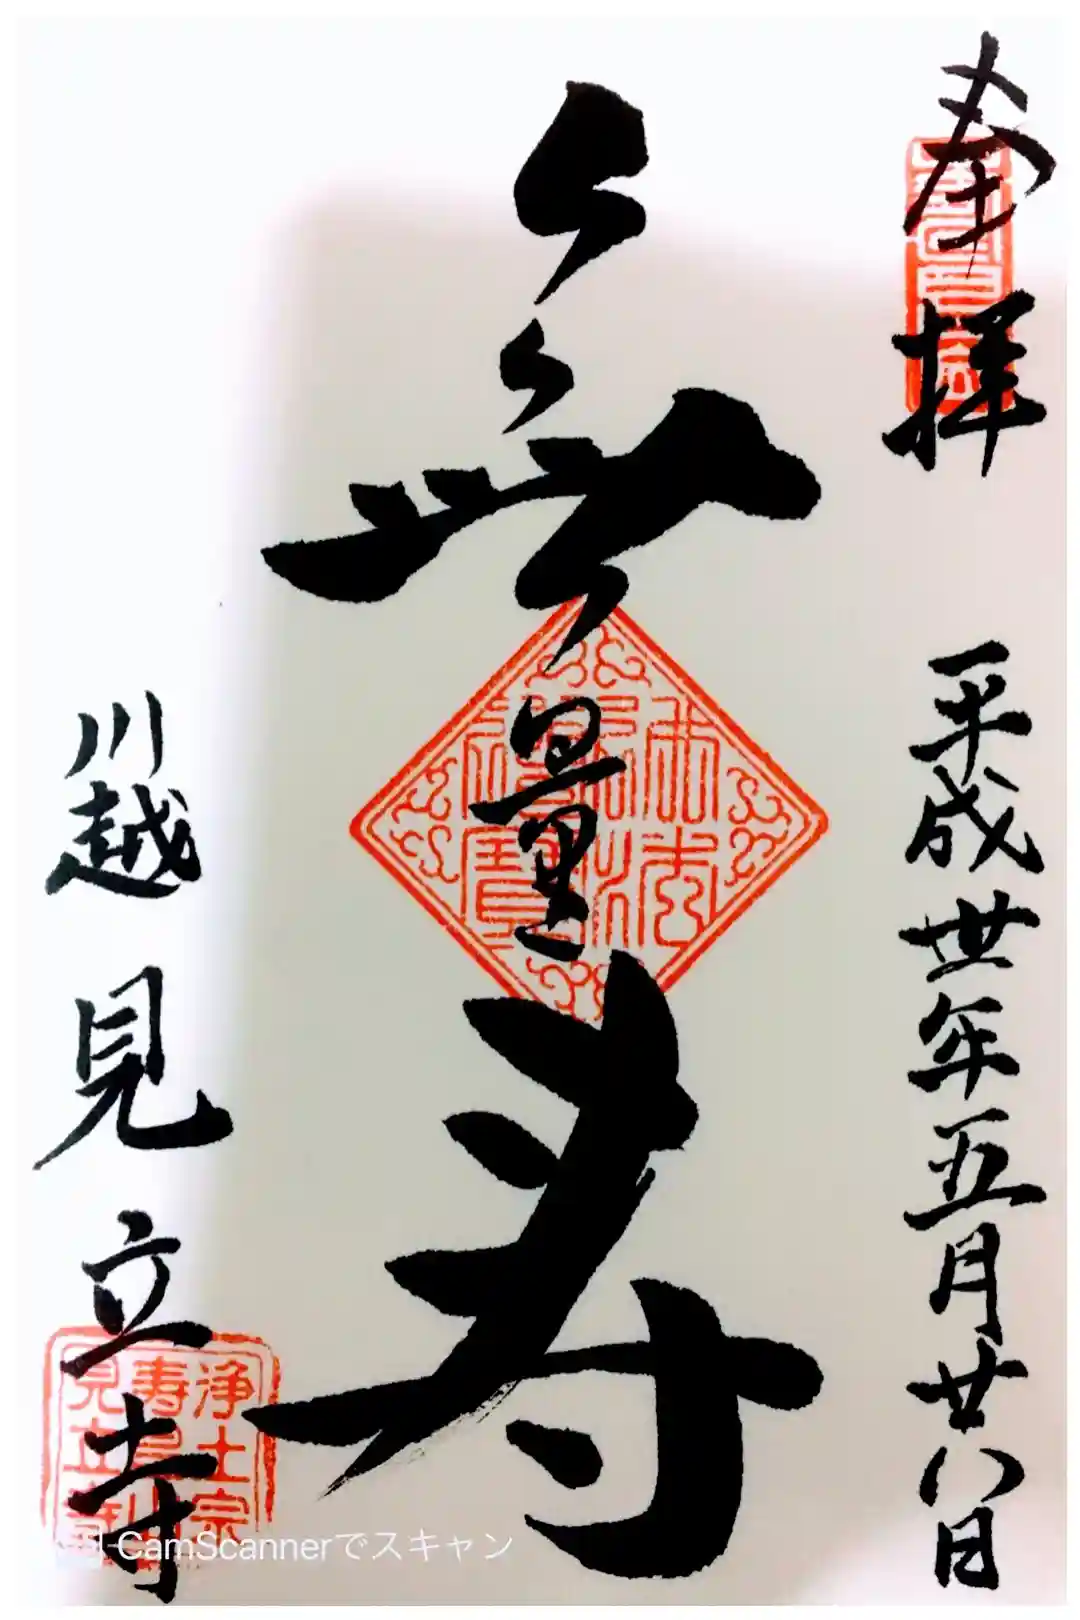 奉拝
平成丗年五月廿八日
無量寿
川越 見立寺
佛法僧寶
浄土宗
寿昌山
見立寺
CamScannerでスキャン